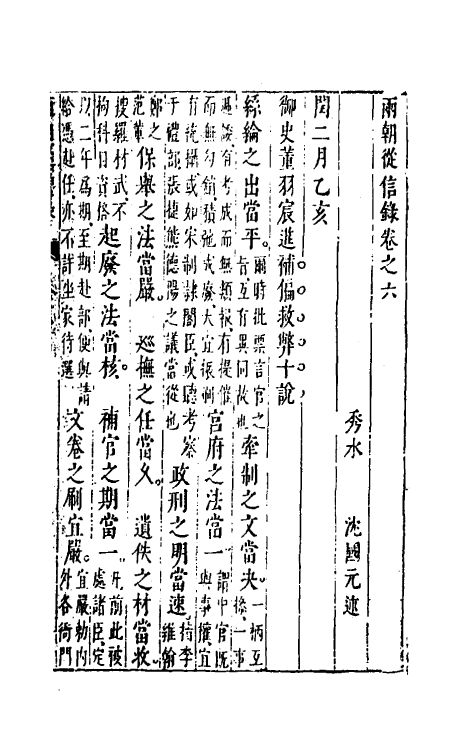 兩朝從信錄卷之六
秀水 沈國元述
閏二月乙亥
御史董羽宸進補偏救弊十說
絲綸之出當平。爾時批票言官之旨互有異同故也 牽制之文當决。一柄互操一事
有考成而無類報有提催而無勾銷積弛成廢大宜振刷 宮府之法當一 謂中官既與事權宜
有統攝或如宋制隸閣臣或聽考察于禮部張捷熊德陽之議當從也 政刑之明當速 李維翰
鄭之范輩 保舉之法當嚴。 巡撫之任當久。 遺佚之材當收。
搜羅材武不拘科目資格 起廢之法當核。 補官之期當一 前此被處諸臣定
以二年爲期至期赴部便與請給憑赴任亦不許坐家待選 文卷之刷宜嚴。宜嚴勅内外各衙門